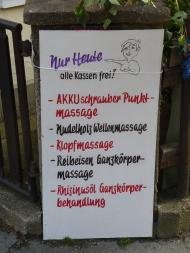 Nur Heute
alle Kassen frei!
- AKKUschrauber Punkt-
massage
- Nudelholz Wellenmassage
- Klopfmassage
- Reibeisen Ganzkörper-
massage
- Rhizinusöl Ganzkörper-
behandlung